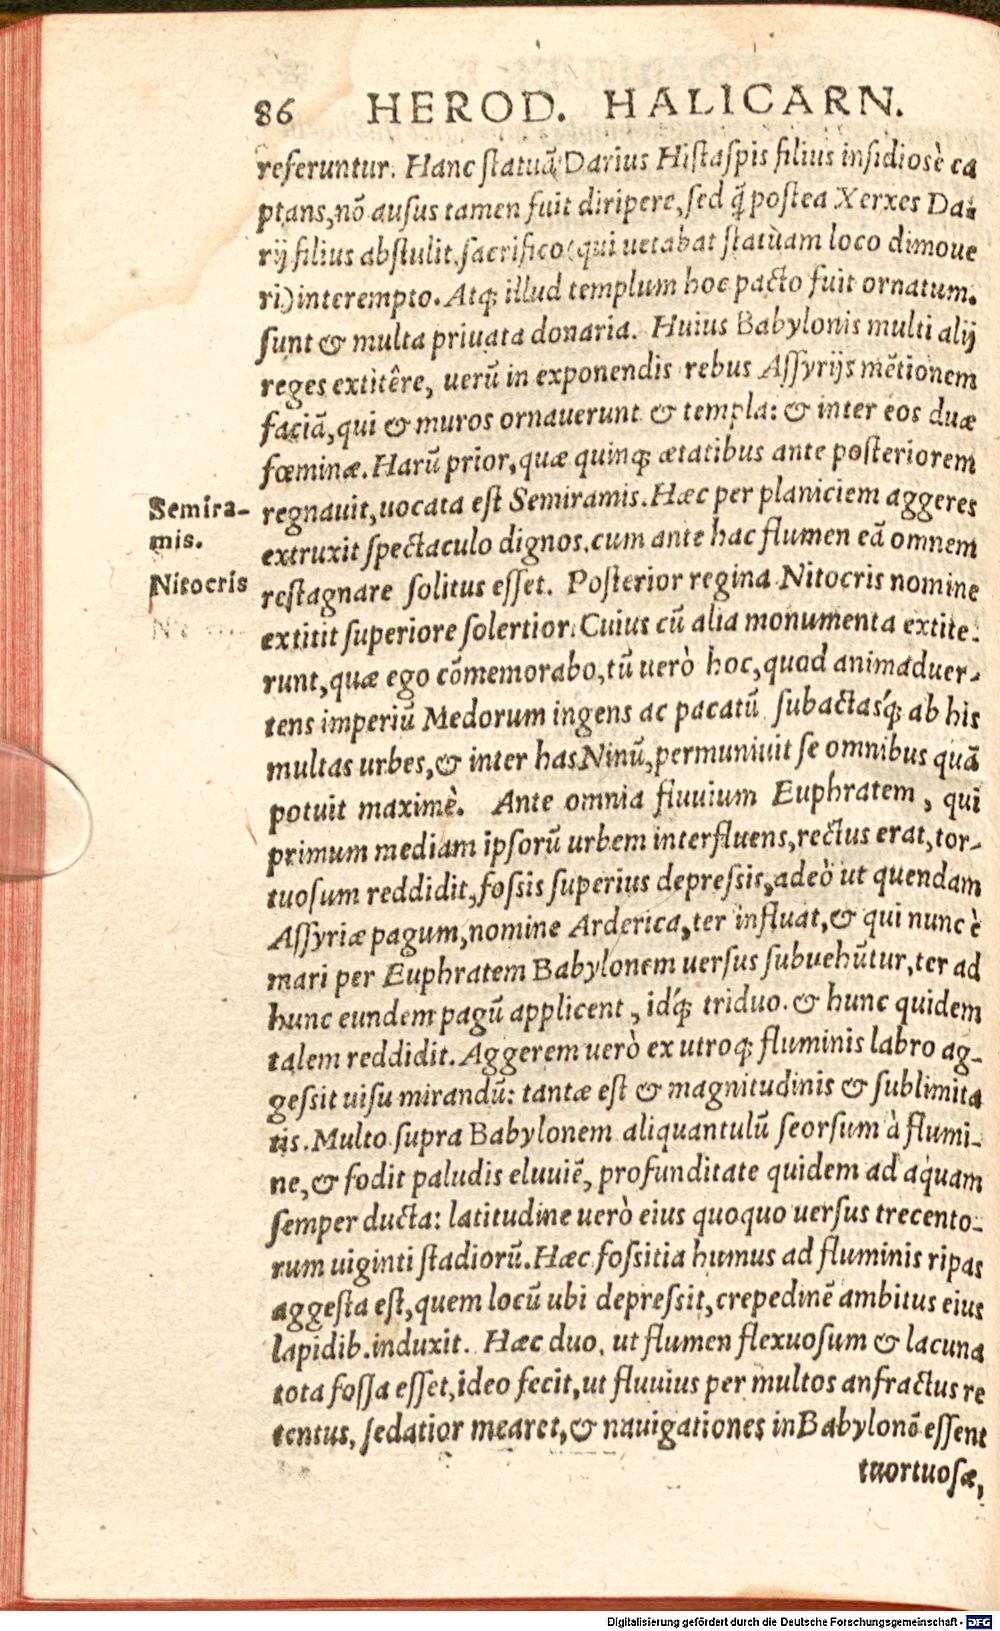 86 HEROD. HALICARN.
referuntur. Hanc ſtatuã Darius Hiſtaſpis filius inſidiosè ca
ptans, nõ auſus tamen fuit diripere, ſed q̃ poſtea Xerxes Da-
rij filius abſtulit, ſacrifico (qui uetabat ſtatuam loco dimoue
ri) interempto. Atq; illud templum hoc pacto fuit ornatum.
ſunt & multa priuata donaria. Huius Babylonis multi alij
reges extitêre, uerũ in exponendis rebus Aſſyrijs mẽtionem
faciã, qui & muros ornauerunt & templa: & inter eos duæ
fœminæ. Harũ prior, quæ quinq; ætatibus ante poſteriorem
Semira-
mis.
regnauit, uocata eſt Semiramis. Hæc per planiciem aggeres
extruxit ſpectaculo dignos, cum ante hac flumen eã omnem
Nitocris
reſtagnare ſolitus eſſet. Poſterior regina Nitocris nomine
extitit ſuperiore ſolertior. Cuius cũ alia monumenta extite-
runt, quæ ego cõmemorabo, tũ uerò hoc, quod animaduer-
tens imperiũ Medorum ingens ac pacatũ ſubactasq́; ab his
multas urbes, & inter has Ninũ, permuniuit ſe omnibus quã
potuit maximè. Ante omnia fluuium Euphratem, qui
primum mediam ipſorũ urbem interfluens, rectus erat, tor-
tuoſum reddidit, foſsis ſuperius depreſsis, adeò ut quendam
Aſſyriæ pagum, nomine Arderica, ter influat, & qui nunc è
mari per Euphratem Babylonem uerſus ſubuehũtur, ter ad
hunc eundem pagũ applicent, idq́; triduo. & hunc quidem
talem reddidit. Aggerem uerò ex utroq; fluminis labro ag-
geſsit uiſu mirandũ: tantæ eſt & magnitudinis & ſublimita
tis. Multo ſupra Babylonem aliquantulũ ſeorſum à flumi-
ne, & fodit paludis eluuiẽ, profunditate quidem ad aquam
ſemper ducta: latitudine uerò eius quoquo uerſus trecento-
rum uiginti ſtadiorũ. Hæc foſsitia humus ad fluminis ripas
aggeſta eſt, quem locũ ubi depreſsit, crepedinẽ ambitus eius
lapidib. induxit. Hæc duo, ut flumen flexuoſum & lacuna
tota foſſa eſſet, ideo fecit, ut fluuius per multos anfractus re
tentus, ſedatior mearet, & nauigationes in Babylonẽ eſſent
tuortuoſæ,
Digitalisierung gefördert durch die Deutsche Forschungsgemeinschaft - DFG